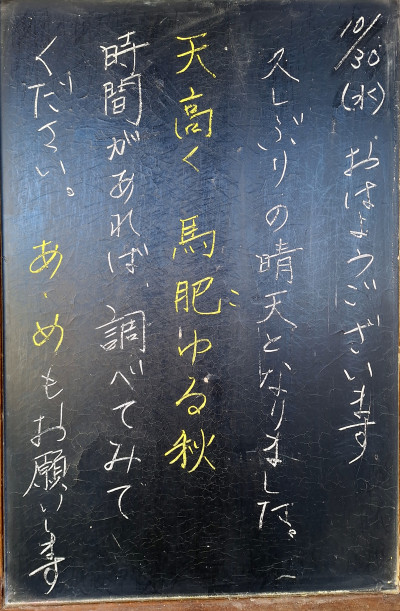 10/30(水) おはようございます
久しぶりの晴天となりました。
天高く 馬肥ゆる秋
こ
時間があれば、調べてみて
ください。 あゝめもお願いします